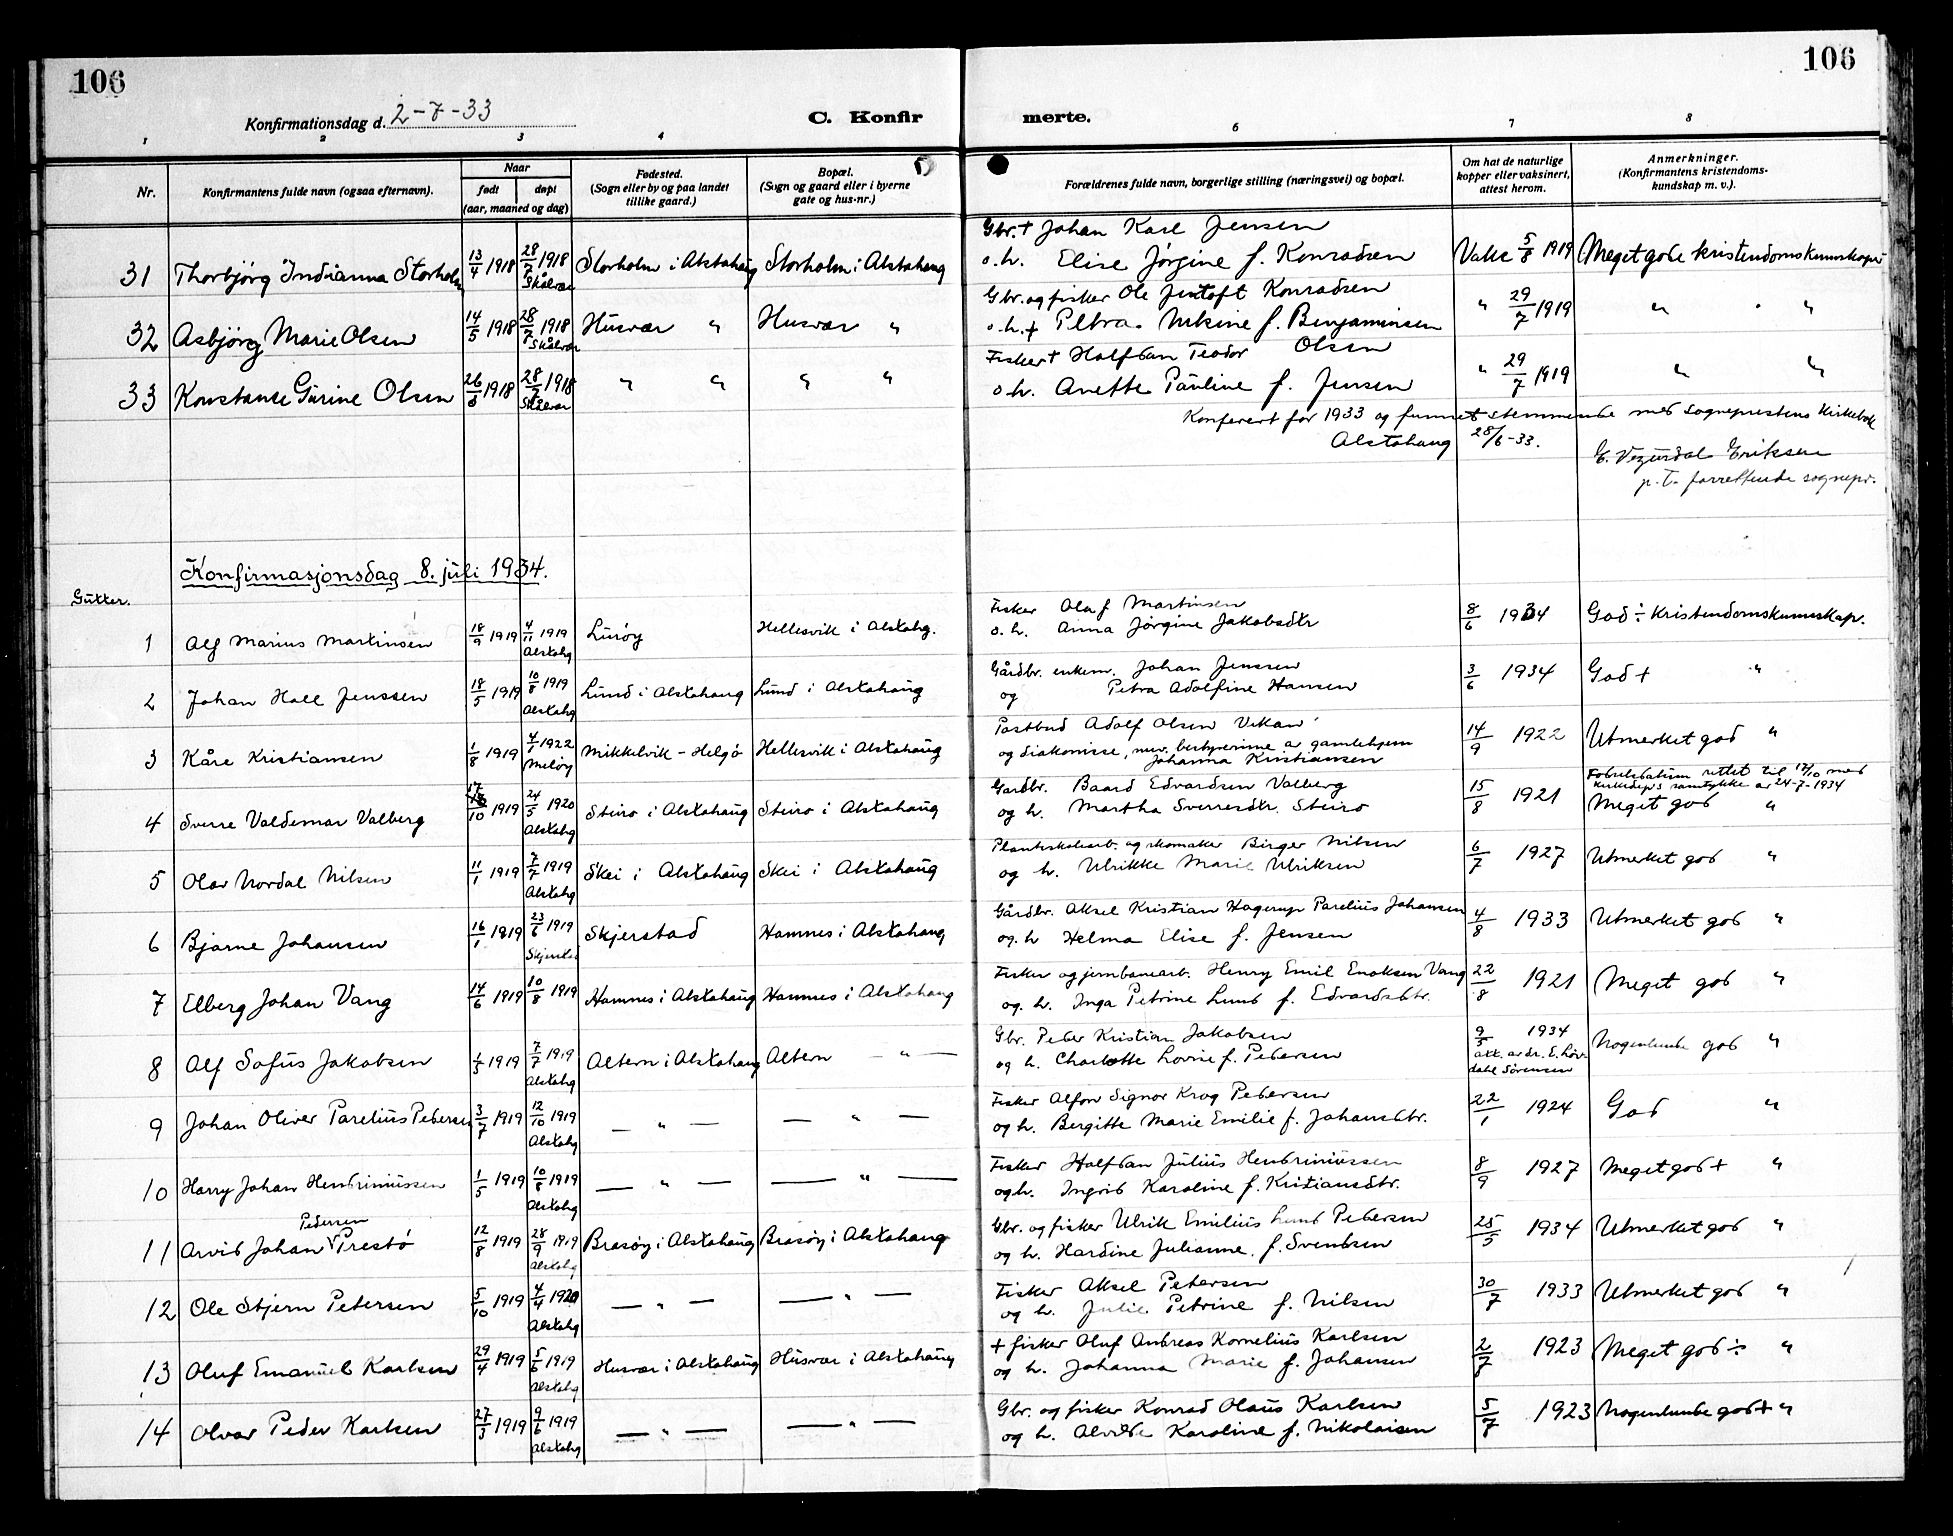 106
106
Konfirmationsdag d. 2-7-33
C. Konfir
merte.
1 2 3 4 6 7 8
Nr.
Konfirmantens fulde navn (ogsaa efternavn).
Naar
født
døpt
(aar, maaned og dag)
Fødested.
(Sogn eller by og paa landet
tillike gaard.)
Bopæl.
(Sogn og gaard eller i byerne
gate og hus-nr.)
Forældrenes fulde navn, borgerlige stilling (næringsvei) og bopæl.
Om hat de naturlige
kopper eller vaksinert,
attest herom.
Anmerkninger.
(Konfirmantens kristendoms-
kundskap m. v.).
31 Thorbjørg Indianna Storholm 13/4 1918 28/7 1918 Skålvær Storholm i Alstahaug Storholm i Alstahaug
Gbr. + Johan Karl Jensen
o. h. Elise Jørgine f. Konradsen Vakс 5/8 1919 Meget gode kristendomskunnskaper
32 Asbjørg Marie Olsen 14/5 1918 28/7 1918 Skålvær Husvær " Husvær "
Gbr. og fisker Ole Jentoft Konradsen
o. h. + Petra Nikine f. Benjaminsen " 29/7 1919 " "
33 Konstanse Gurine Olsen 26/6 1918 28/7 1918 Skålvær " " " "
Fisker + Halfdan Teodor Olsen
o. h. Anette Pauline f. Jensen " 29/7 1919 " "
Konferert for 1933 og funnet stemmende med sogneprestens kirkebok
Alstahaug 28/6-33.
E. Eriksen
p. t. forrettende sognepr.
Konfirmasjonsdag 8. juli 1934.
Gutter.
1 Alf Marius Martinsen 18/9 1919 4/11 1919 Alstahg Lurøy Hellesvik i Alstahg.
Fisker Olaf Martinsen
o. h. Anna Jørgine Jakobsdtr 8/6 1934 God ÷ kristendomskunnskap.
2 Johan Hall Jenssen 18/5 1919 10/8 1919 Alstahg Lund i Alstahaug Lund i Alstahaug
Gårdbr. enkem. Johan Jenssen
og Petra Adolfine Hansen 3/6 1934 God + "
3 Kåre Kristiansen 1/8 1919 4/1 1922 Meløy Mikkelvik - Helgø Hellesvik i Alstahaug
Postbud Adolf Olsen Vikan
og diakonisse, nuv. bestyrerinne a gamlehjem
Johanna Kristiansen 14/9 1922 Utmerket god "
4 Sverre Valdemar Valberg 17/10 1919 24/5 1920 Alstahg Steiro i Alstahaug Steiro i Alstahaug
Gardbr. Baard Edvardsen Valberg
og h. Martha Sverresdtr. Steiro 15/8 1921
Fødselsdatum rettet til 17/10 med
Kirkedep's samtykke a 24-7-1934
Meget god "
5 Olav Nordal Nilsen 11/1 1919 7/7 1919 Alstahg Skei i Alstahaug Skei i Alstahaug
Planteskolearb. og skomaker Birger Nilsen
og h. Ulrikke Marie Ulriksen 6/7 1927 Utmerket god "
6 Bjarne Johansen 16/1 1919 23/6 1919 Skjerstad Hamnes i Alstahaug
Gårdbr. Aksel Kristian Hagerup Parelius Johansen
og. h Helma Elise f. Jensen 4/8 1933 Utmerket god "
7 Elberg Johan Vang 14/6 1919 10/8 1919 Hamnes i Alstahaug Hamnes i Alstahaug
Fisker og jernbanearb. Henry Emil Enoksen Vang
og. h. Inga Petrine Lund f. Edvardsdtr. 22/8 1921 Meget god "
8 Alf Sofus Jakobsen 1/5 1919 7/7 1919 Alstahg Altern i Alstahaug Altern — " —
Gbr. Peder Kristian Jakobsen
og h. Charlotte Lovise f. Pedersen 9/5 1934
att. av dr. E. Løv-
dahl Sørensen
Nogenlunde god "
9 Johan Oliver Parelius Pedersen 3/7 1919 12/10 1919 Alstahg — " — — " —
Fisker Alfon Signor Krog Pedersen
og h. Bergitte Marie Emilie f. Johansdtr. 22/1 1924 God "
10 Harry Johan Hendriniussen 1/5 1919 10/8 1919 Alstahg — " — — " —
Fisker Halfdan Julius Hendriniussen
og h. Ingrid Karoline f. Kristiansdtr. 8/9 1927 Meget god + "
Pedersen
11 Arvid Johan ᵛ Prestø 12/8 1919 28/9 1919 Alstahg Brasøy i Alstahaug Brasøy i Alstahaug
Gbr. og fisker Ulrik Emilius Lund Pedersen
og h. Hardine Julianne. f. Svendsen 25/5 1934 Utmerket god "
12 Ole Stjern Petersen 5/10 1919 4/4 1920 Alstahg — " — — " —
Fisker Aksel Petersen
og h. Julie Petrine f. Nilsen 30/7 1933 Utmerket god "
13 Oluf Emanuel Karlsen 29/4 1919 5/6 1919 Alstahg Husvær i Alstahaug Husvær i Alstahaug
+ fisker Oluf Andreas Kornelius Karlsen
og h. Johanna Marie f. Johansen 2/8 1923 Meget god ÷ "
14 Olvar Peder Karlsen 27/3 1919 9/6 1919 Alstahg — " — — " —
Gbr. og fisker Konrad Olaus Karlsen
og h. Alvilde Karoline f. Nikolaisen 5/7 1923 Nogenlunde god + "